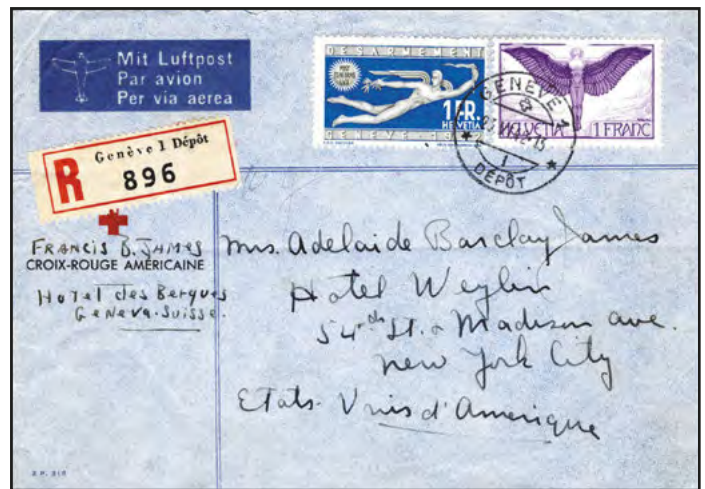 Mit Luftpost
Par avion
Per via aerea
DESARMEMENT
1 FR.
HELVETIA
GENEVE
HELVETIA 1 FRANC
GENÈVE 1
DÉPÔT
R
Genève 1 Dépôt
896
FRANCIS B. JAMES
CROIX-ROUGE AMÉRICAINE
Hotel des Bergues
Geneva-Suisse.
Mrs. Adelaide Barclay James
Hotel Weylin
54th St. & Madison Ave.
New York City
Etats-Unis d'Amerique